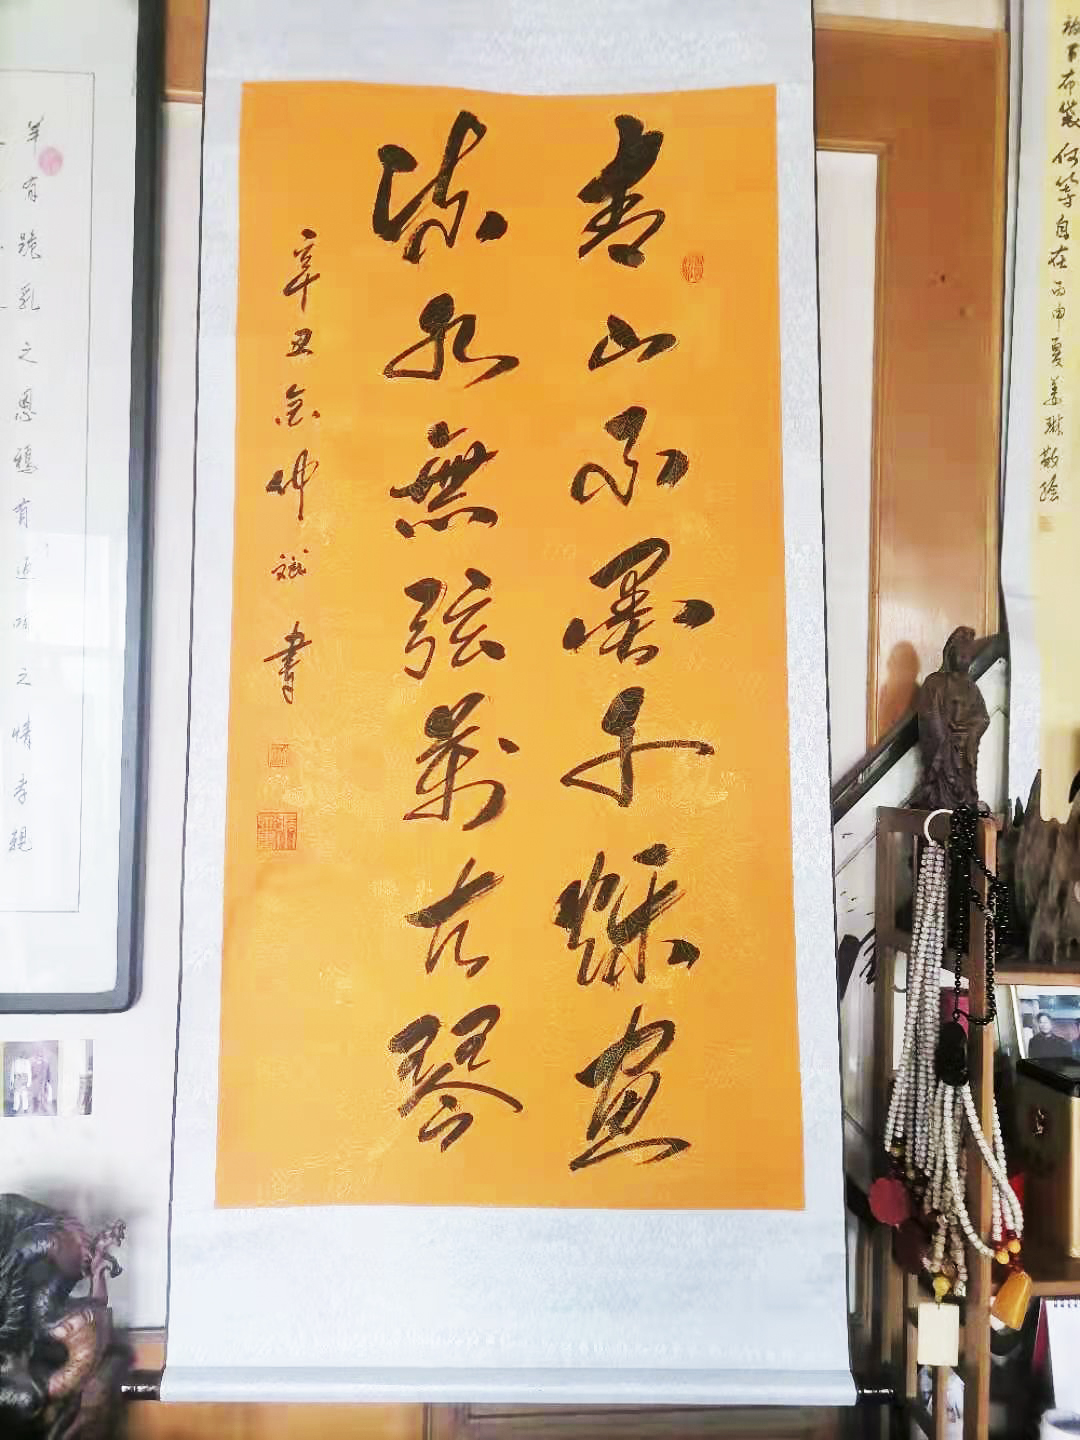 放下布袋何等自在丙申夏姜琳敬绘
青山不墨千秋画
流水無弦萬古琴
辛丑仲斌書
羊有跪乳之恩鴉有返哺之情孝親